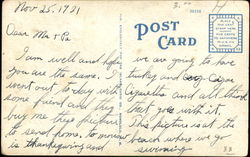 Nov 25, 1921
3.00
Dear Ma & Pa
I am well and hope
you are the same. I
went out to day with
some friend and they
buy me this picture
to send home. to morrow
is thanksgiving and
POST
CARD
we are going to have
turkey and
and all those
that goes with it.
This picture is at the
beach where we go
swimming